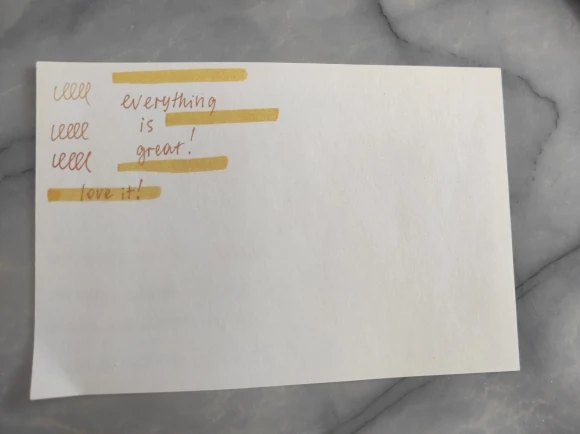 everything
is
great!
love it!